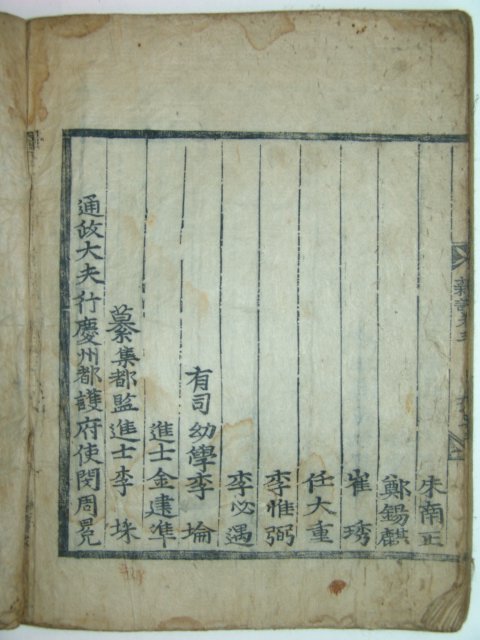 朱南正
鄭錫麒
崔琇
任大重
李惟弼
李必遇
有司幼學李埨
進士金建準
纂集都監進士李埰
通政大夫行慶州都護府使閔周冕